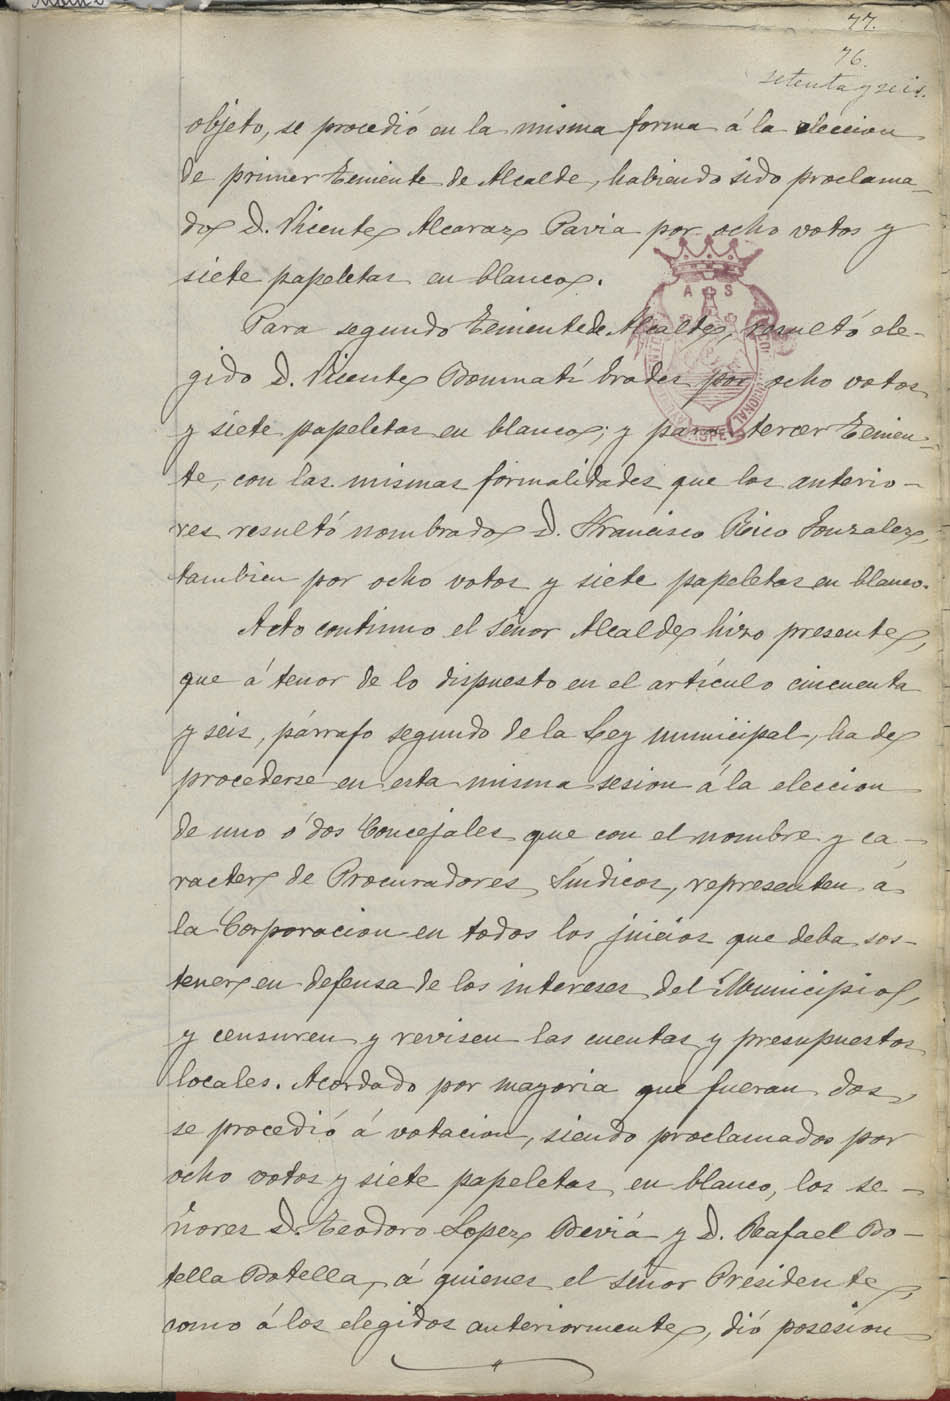 77.
76.
setenta y seis.
objeto, se procedió en la misma forma á la eleccion
de primer Teniente de Alcalde, habiendo sido proclama-
do D. Vicente Alcaraz Pavia por ocho votos y
siete papeletas en blanco.
Para segundo Teniente de Alcalde, resultó ele-
gido D. Vicente Boumatí por ocho votos
y siete papeletas en blanco; y para tercer Tenien-
te, con las mismas formalidades que los anterio-
res resultó nombrado D. Francisco Rico Gonzalez,
tambien por ocho votos y siete papeletas en blanco.
Acto continuo el señor Alcalde hizo presente,
que á tenor de lo dispuesto en el artículo cincuenta
y seis, párrafo segundo de la Ley municipal, ha de
procederse en esta misma sesion á la eleccion
de uno ó dos Concejales que con el nombre y ca-
racter de Procuradores Síndicos, representen á
la Corporacion en todos los juicios que deba sos-
tener en defensa de los intereses del Municipio,
y censuren y revisen las cuentas y presupuestos
locales. Acordado por mayoria que fueran dos,
se procedió á votacion, siendo proclamados por
ocho votos y siete papeletas en blanco, los se-
ñores D. Teodoro Lopez Deviá y D. Rafael Bo-
tella Botella, á quienes el señor Presidente,
como á los elegidos anteriormente, dió posesión
A S